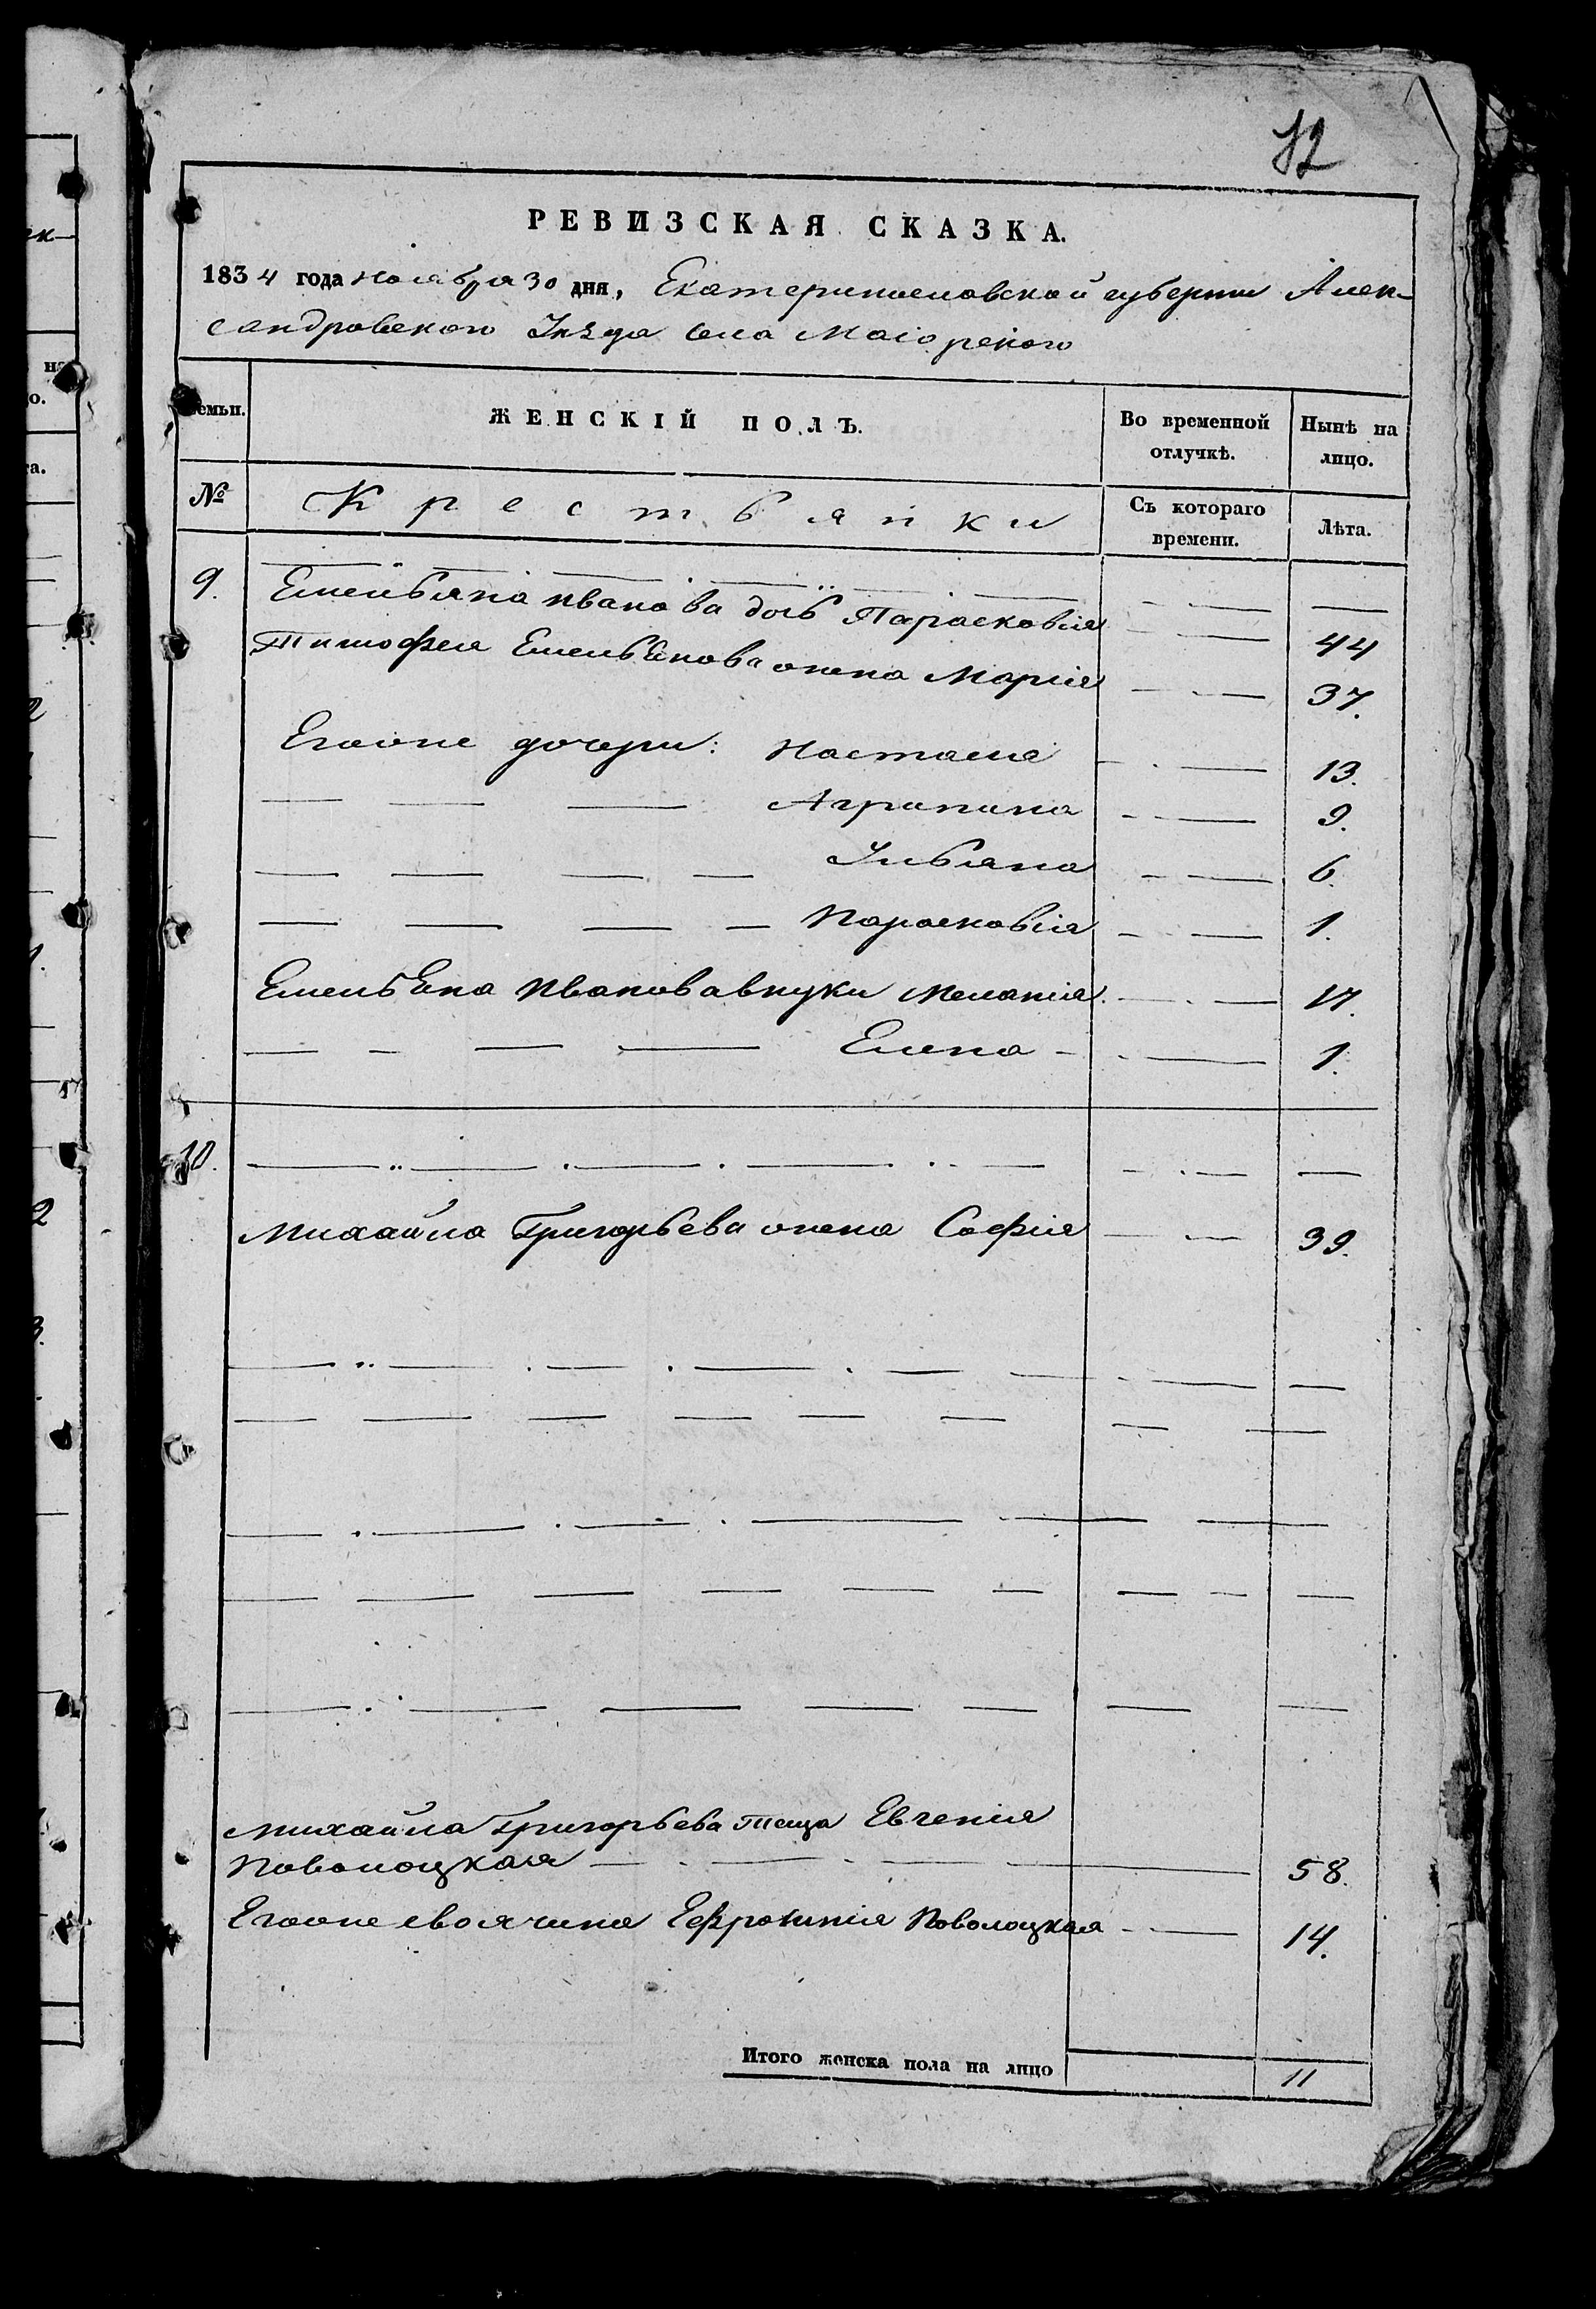 72
РЕВИЗСКАЯ СКАЗКА.
1834 года ноября 30 дня, Екатеринославской губернии Алек-
сандровского Уѣзда села Маіорского
Семьи. ЖЕНСКІЙ ПОЛЪ. Во временной отлучкѣ. Нынѣ на лицо.
№ Крестьянки Съ котораго времени. Лѣта.
9. Емельяна Иванова дочь Парасковія 44
Тимофея Емельянова жена Марія 37.
Егоже дочери: Настасия 13.
Агрипина 9.
Ульяна 6
Парасковія 1.
Емельяна Иванова внуки Меланія 17.
Елена 1.
10.
Михайла Григорьева жена Софія 39.
Михайла Григорьева теща Евгенія
Поволоцкая 58.
Егоже своячина Ефросинія Поволоцкая 14.
Итого женска пола на лицо 11